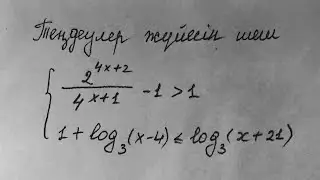 Теңдеулер жүйесін шеш
{ 2^(4x+2) / 4^(x+1) - 1 > 1
1 + log₃(x-4) ≤ log₃(x+21)